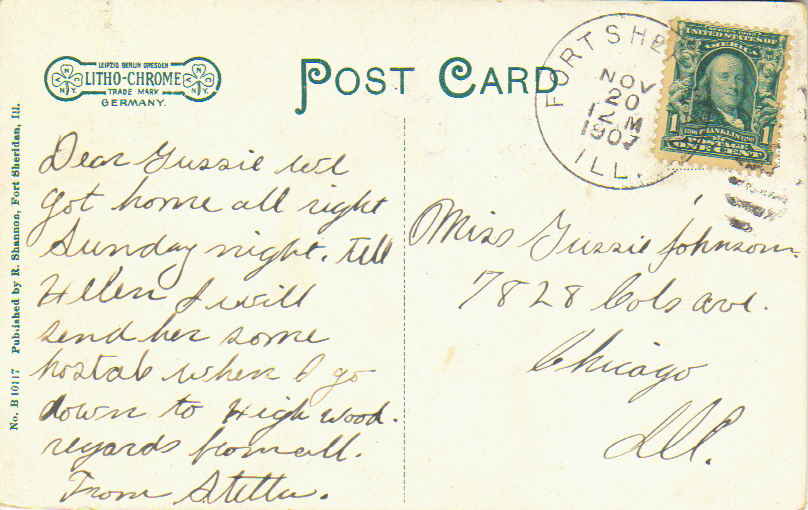 LEIPZIG BERLIN DRESDEN
LITHO-CHROME
TRADE MARK
GERMANY.
N.V.C.N.Y.
POST CARD
FORT SHE
NOV
20
12 M
1907
ILL.
UNITED STATES OF
AMERICA
1 FRANKLIN 1
POSTAGE
ONE CENT
No. B 10117 Published by R. Shannon, Fort Sheridan, Ill.
Dear Gussie we
got home all right
Sunday night. tell
Hellen I will
send her some
postals when I go
down to High wood.
regards from all.
From Stella.
Miss Gussie Johnson.
7828 Cols ave.
Chicago
Ill.